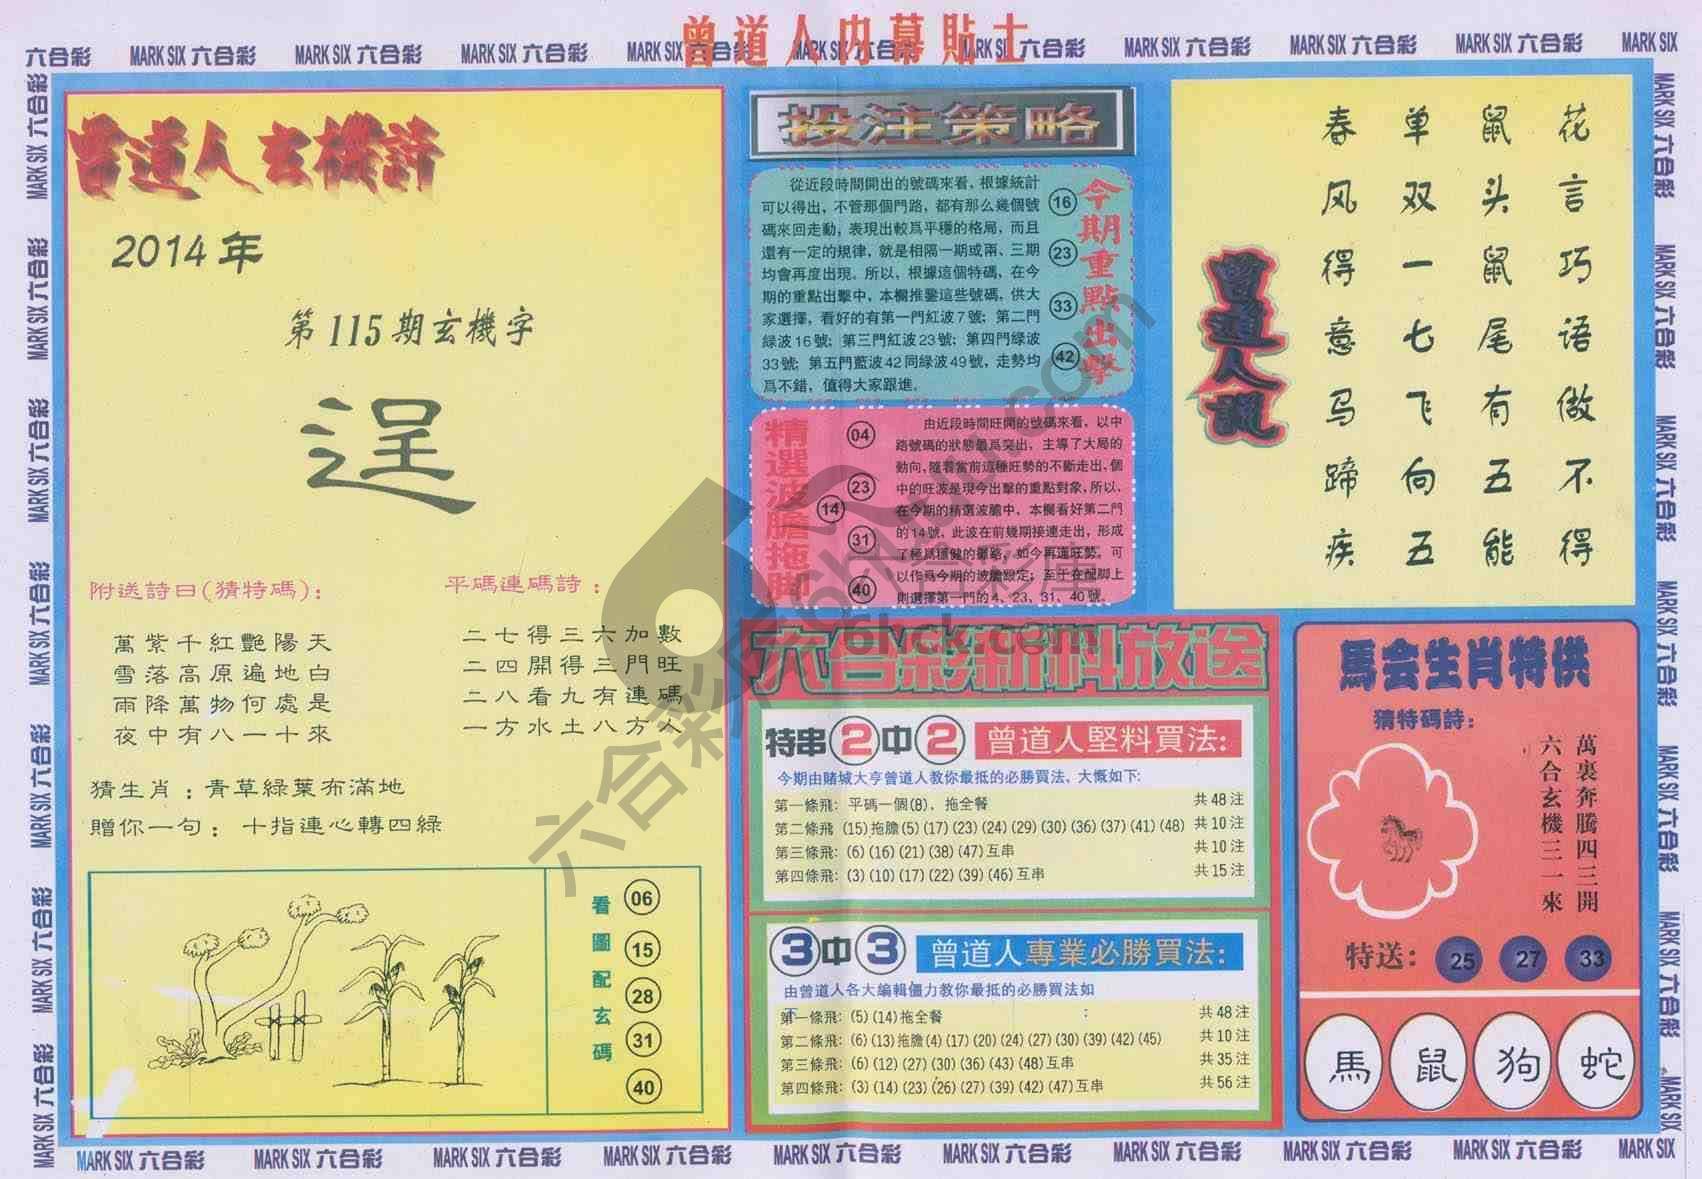 曾道人內幕貼士
六合彩 MARK SIX 六合彩 MARK SIX 六合彩 MARK SIX 六合彩 MARK SIX 六合彩 MARK SIX 六合彩 MARK SIX 六合彩 MARK SIX 六合彩 MARK SIX 六合彩 MARK SIX
曾道人玄機詩
2014年
第115期玄機字
逞
附送詩曰(猜特碼)：
萬紫千紅艷陽天
雪落高原遍地白
雨降萬物何處是
夜中有八一十來
平碼連碼詩：
二七得三六加數
二四開得三門旺
二八看九有連碼
一方水土八方人
猜生肖：青草綠葉布滿地
贈你一句：十指連心轉四綠
看圖配玄碼
06
15
28
31
40
投注策略
從近段時間開出的號碼來看，根據統計
可以得出，不管那個門路，都有那么幾個號
碼來回走動，表現出較爲平穩的格局，而且
還有一定的規律，就是相隔一期或兩、三期
均會再度出現。所以，根據這個特碼，在今
期的重點出擊中，本欄推鑒這些號碼，供大
家選擇，看好的有第一門紅波7號；第二門
綠波16號；第三門紅波23號；第四門綠波
33號；第五門藍波42同綠波49號，走勢均
爲不錯，值得大家跟進。
16
23
33
42
今期重點出擊
精選波膽拖脚
04
23
14
31
40
由近段時間旺開的號碼來看，以中
路號碼的狀態最爲突出，主導了大局的
動向，隨着當前這種旺勢的不斷走出，個
中的旺波是現今出擊的重點對象，所以，
在今期的精選波膽中，本欄看好第二門
的14號，此波在前幾期接連走出，形成
了極爲穩健的郷路，如今再逢旺勢，可
以作爲今期的波膽跟定；至于在配脚上
則選擇第一門的4、23、31、40號。
曾道人說
花言巧语做不得
鼠头鼠尾有五能
单双一七飞向五
春风得意马蹄疾
六合彩新料放送
特串2中2 曾道人堅料買法：
今期由賭城大亨曾道人教你最抵的必勝買法，大慨如下：
第一條飛：平碼一個(8)，拖全餐 共48注
第二條飛 (15)拖膽(5)(17)(23)(24)(29)(30)(36)(37)(41)(48) 共10注
第三條飛：(6)(16)(21)(38)(47)互串 共10注
第四條飛：(3)(10)(17)(22)(39)(46)互串 共15注
3中3 曾道人專業必勝買法：
由曾道人各大編輯僵力教你最抵的必勝買法如下：
第一條飛：(5)(14)拖全餐 共48注
第二條飛：(6)(13)拖膽(4)(17)(20)(24)(27)(30)(39)(42)(45) 共10注
第三條飛：(6)(12)(27)(30)(36)(43)(48)互串 共35注
第四條飛：(3)(14)(23)(26)(27)(39)(42)(47)互串 共56注
馬会生肖特供
猜特碼詩：
萬裏奔騰四三開
六合玄機三一來
特送：25 27 33
馬 鼠 狗 蛇
六合彩库 6hck.com
MARK SIX 六合彩 MARK SIX 六合彩 MARK SIX 六合彩 MARK SIX 六合彩 MARK SIX 六合彩 MARK SIX 六合彩 MARK SIX 六合彩 MARK SIX 六合彩 MARK SIX 六合彩 MARK SIX